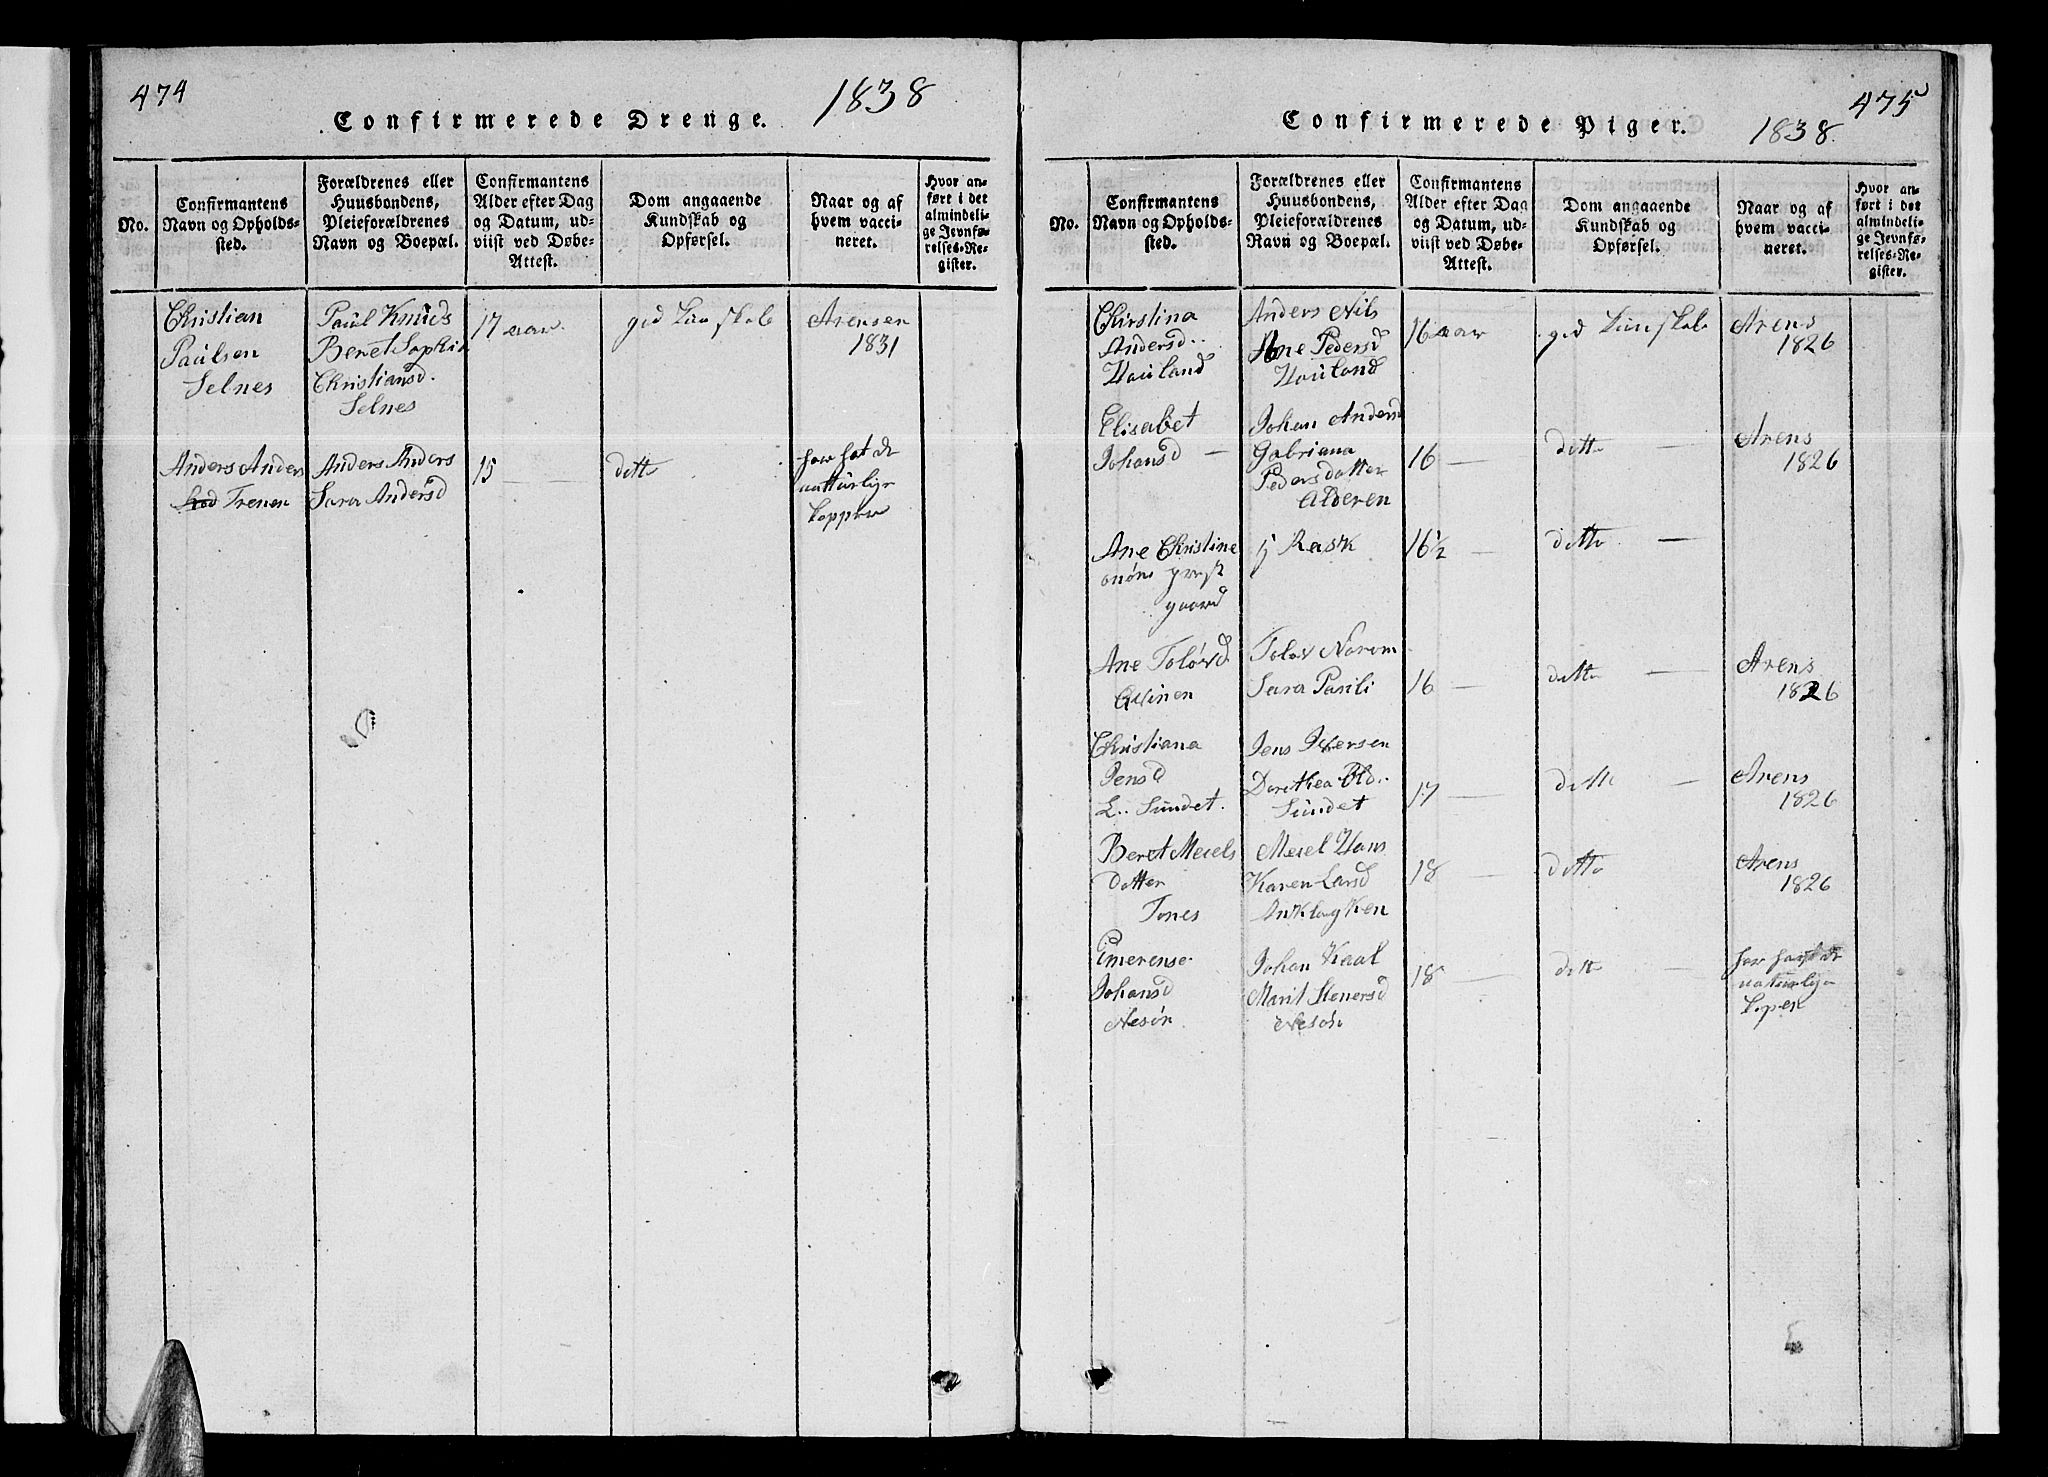 474
1838
Confirmerede Drenge.
No.
Confirmantens
Navn og Opholds-
sted.
Forældrenes eller
Huusbondens,
Pleieforældrenes
Navn og Boepæl.
Confirmantens
Alder efter Dag
og Datum, ud-
viist ved Døbe-
Attest.
Dom angaaende
Kundskab og
Opførsel.
Naar og af
hvem vacci-
neret.
Hvor an-
ført i det
almindeli-
ge Jevnfø-
relses-Re-
gister.
Christian
Paulsen
Selnes
Paul Knuds
Beret Sophia
Christiansd.
Selnes
17 aar
god
Arensen
1831
Anders Anders
Trenen
Anders Anders
Sara Andersd
15
ditto
har hat de
naturlige
kopper
475
1838
Confirmerede Piger.
No.
Confirmantens
Navn og Opholds-
sted.
Forældrenes eller
Huusbondens,
Pleieforældrenes
Navn og Boepæl.
Confirmantens
Alder efter Dag
og Datum, ud-
viist ved Døbe-
Attest.
Dom angaaende
Kundskab og
Opførsel.
Naar og af
hvem vacci-
neret.
Hvor an-
ført i det
almindeli-
ge Jevnfø-
relses-Re-
gister.
Christina
Andersd..
Hauland
Anders Nils
Ane Pedersd
Hauland
16 aar
god
Arens
1826
Elisabet
Johansd
Johan Andersd
Gabriana
Pedersdatter
Alderen
16
ditto
Arens
1826
Ane Christine
prest
gaard
Rask
16 1/2
ditto
Ane Tolövd
Tolov
Sara
16
ditto
Arens
1826
Christiana
Jensd
L.. Sundet.
Jens Iversen
Dorethea Old..
Sundet
17
ditto
Arens
1826
Beret Mesels
datter
Tones
Mesel Hans
Karen Larsd
18
ditto
Arens
1826
Emerense
Johansd
Nesön
Johan Kaal
Marit Stenersd
Nesön
18
ditto
har hat de
naturlige
koper